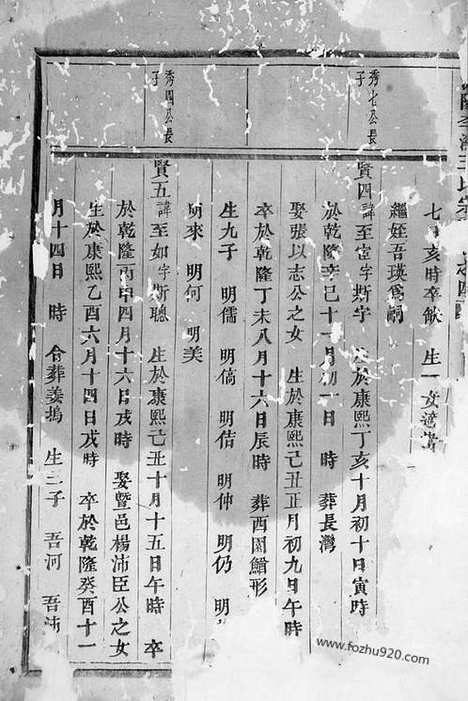 七　亥時卒欽　生一女適
繼姪吾瑛爲嗣
秀七公長子
賢四諱至宦字斯字　生於康熙丁亥十月初十日寅時
於乾隆辛巳十一月初一日　時　葬長灣
娶張以志公之女　生於康熙己丑正月初九日午時
卒於乾隆丁未八月十六日辰時　葬酉園鱔形
生九子　明儒　明倘　明佶　明仲　明仍　明
明來　明何　明美
秀四公長子
賢五諱至如字斯聰　生於康熙己丑十月十五日午時　卒
於乾隆丙申四月十六日戌時　娶暨邑楊沛臣公之女
生於康熙乙酉六月十四日戌時　卒於乾隆癸酉十一
月十四日　時　合葬姜塢　生二子　吾河　吾沛
www.fozhu920.com